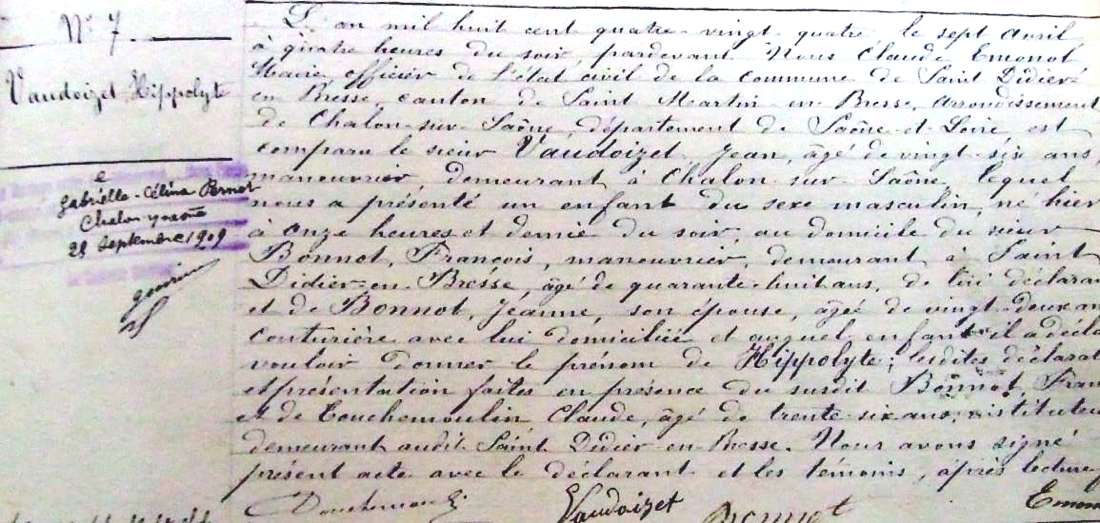 N° 7.
Vaudoizet Hippolyte
Gabrielle-Célina Pernot
Chalon
28 septembre 1909
L'an mil huit cent quatre-vingt-quatre le sept avril
à quatre heures du soir, pardevant Nous Claude Emonot
Maire, officier de l'état civil de la commune de Saint Didier-
en Bresse, canton de Saint Martin en Bresse, arrondissement
de Chalon-sur-Saône, département de Saône-et-Loire, est
comparu le sieur Vaudoizet Jean, âgé de vingt-six ans,
manouvrier, demeurant à Chalon-sur-Saône lequel
nous a présenté un enfant du sexe masculin, né hier
à onze heures et demie du soir, au domicile du sieur
Bonnot, François, manouvrier, demeurant à Saint
Didier-en-Bresse, âgé de quarante-huit ans, de lui déclarant
et de Bonnot, Jeanne, son épouse, âgée de vingt-deux ans
couturière avec lui domiciliée et auquel enfant il a décla
vouloir donner le prénom de Hippolyte; lesdites déclarat
et présentation faites en présence du susdit Bonnot, Fran
et de Touchemoulin Claude, âgé de trente-six ans, instituteu
demeurant audit Saint Didier-en-Bresse. Nous avons signé
présent acte avec le déclarant et les témoins, après lecture
Vaudoizet
Bonnot
Emon